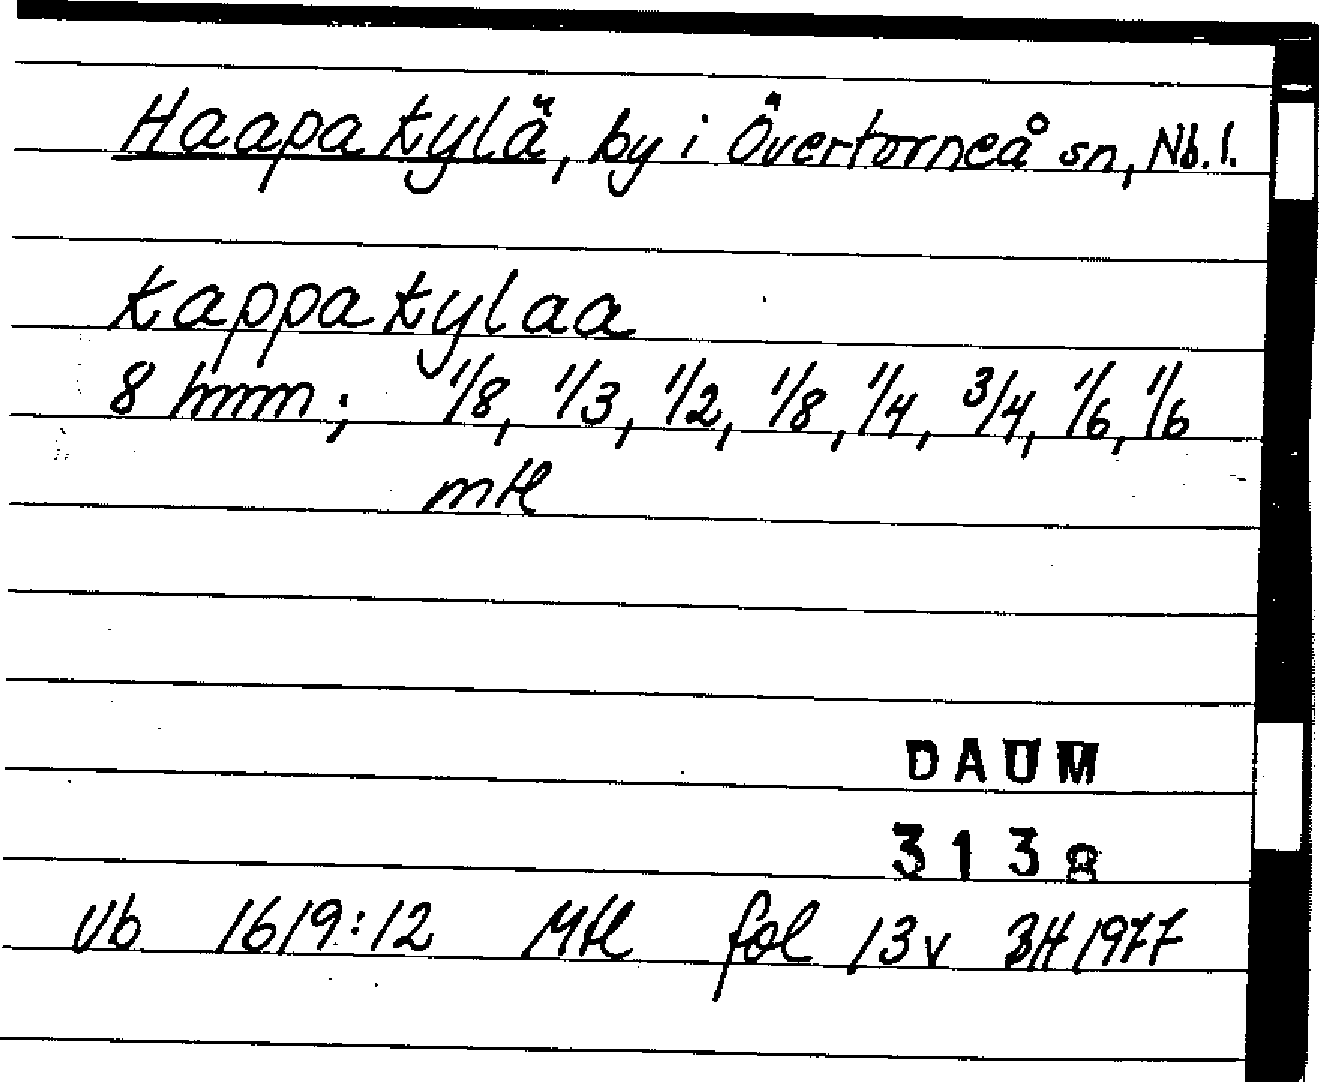 Haapakylä, by i Övertorneå sn, Nb.l.
kappakylaa
8 hmm; 1/8, 1/3, 1/2, 1/8, 1/4, 3/4, 1/6, 1/6
mtl
DAUM
3138
Vb 1619:12 Mtl fol 13v BH 1977